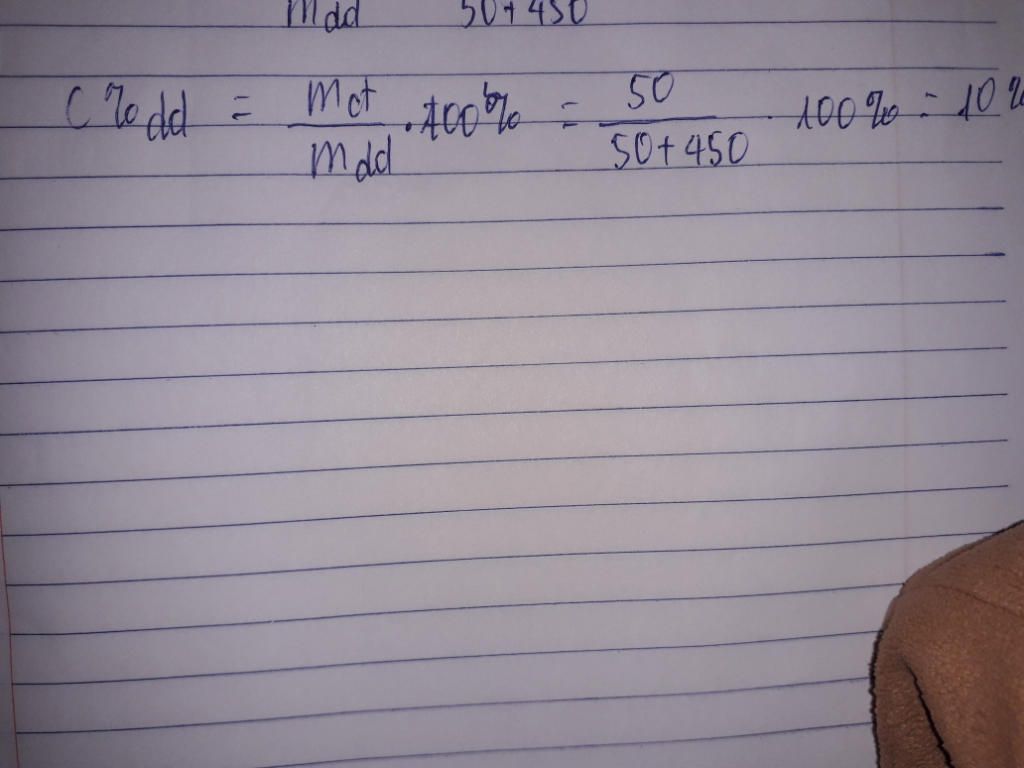 mdd 50+450
C%dd = mct/mdd . 100% = 50/50+450 . 100% = 10%